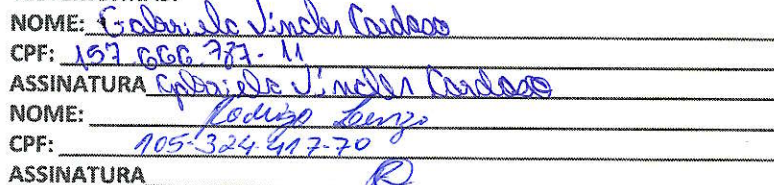 NOME: Gabriela Vincler Cardoso
CPF: 157.666.787-11
ASSINATURA Gabriela Vincler Cardoso
NOME: Rodrigo Lenzo
CPF: 105-324.417-70
ASSINATURA R